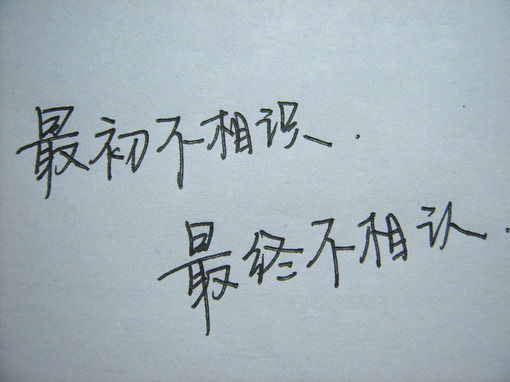 最初不相识.
最终不相认.